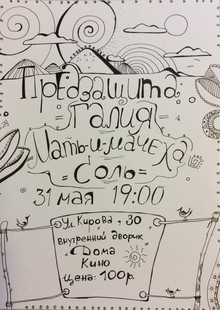 Предзащита
Талия
Мать-и-мачеха
= Соль =
31 мая 19:00
Ул. Кирова, 30
внутренний дворик
Дома
Кино
цена: 100р.